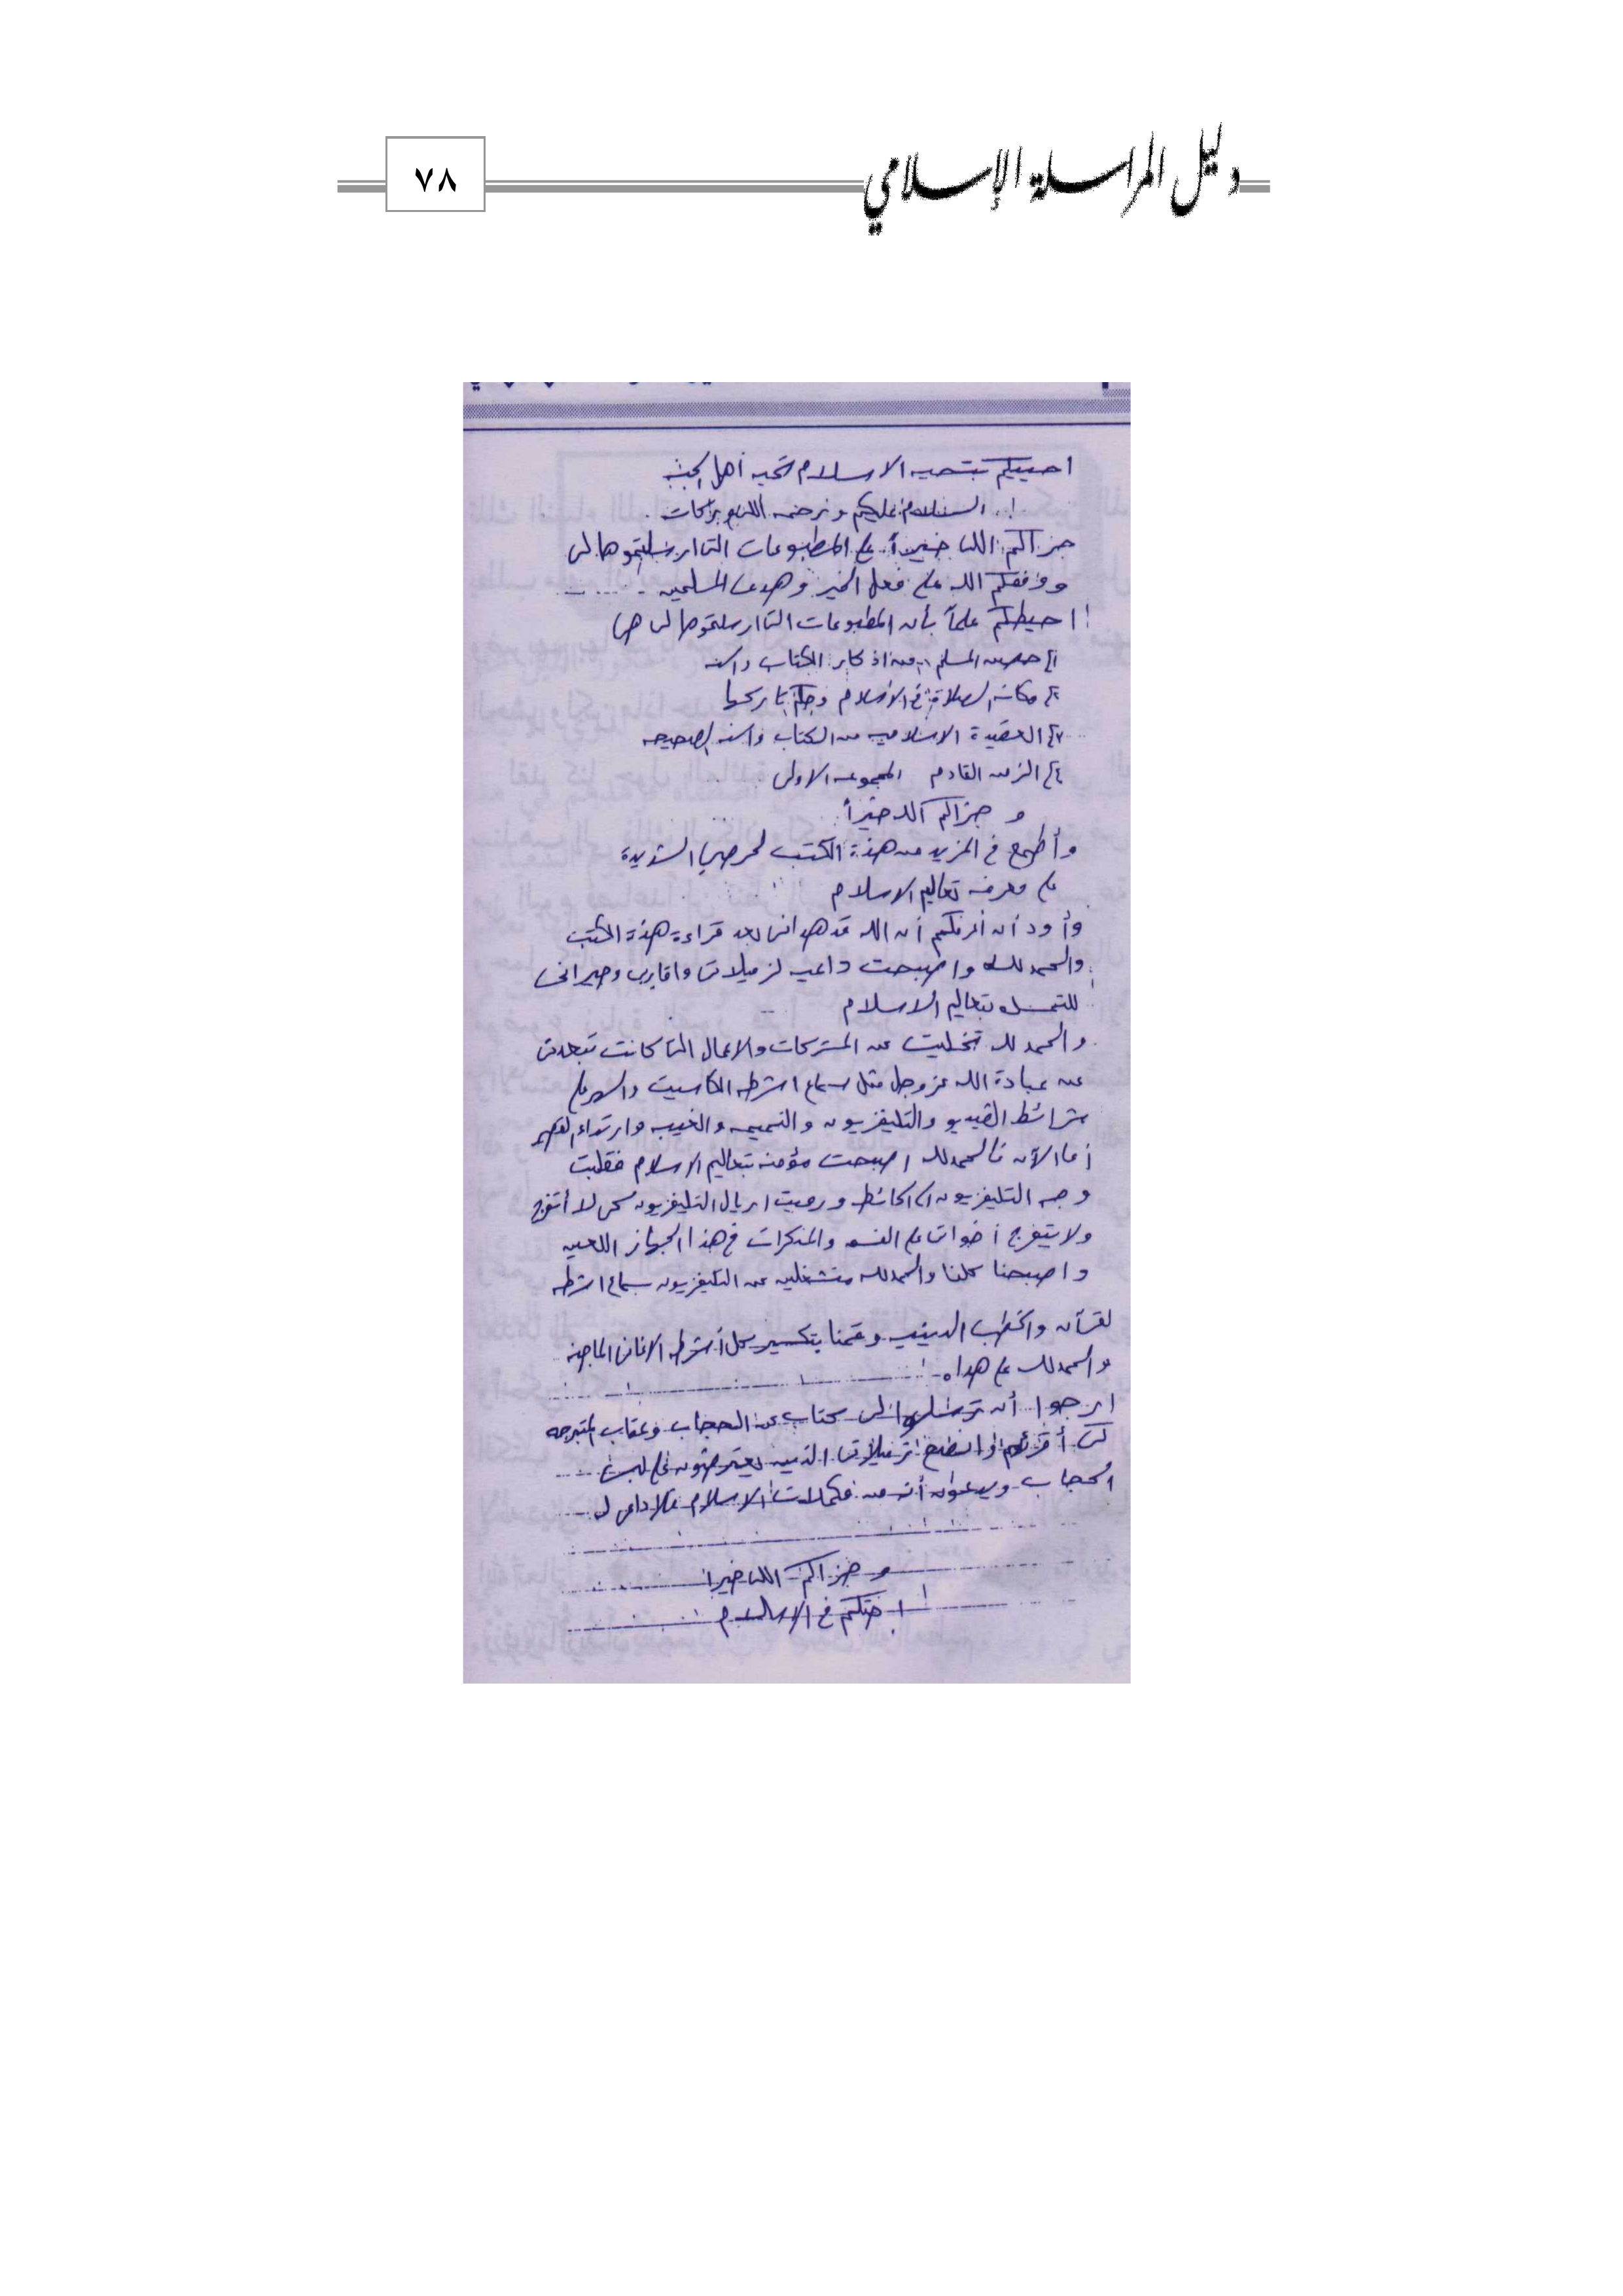 دليل المراسلة الإسلامي
٧٨
احييكم بتحيه الاسلام تحيه أهل الجنه
السلام عليكم ورحمه الله وبركات
جزاكم الله خيراً على المطبوعات التى ارسلتموها لى
ووفقكم الله على فعل الخير وهدى المسلمين
احيطكم علماً بأن المطبوعات التى ارسلتموها لى هى
١] حصن المسلم من اذكار الكتاب والسنه
٢] مكانه الصلاة فى الاسلام وحكم تاركها
٣] العقيدة الاسلاميه من الكتاب والسنه الصحيحه
٤] الزمن القادم المجموعه الاولى
و جزاكم الله خيراً
وأطمع فى المزيد من هذة الكتب لحرصى الشديدة
على معرفه تعاليم الاسلام
وأود أن أعرفكم أن الله قد هدانى بعد قراءة هذة الكتب
والحمد لله واصبحت داعيه لزميلاتى واقاربى وجيرانى
للتمسك بتعاليم الاسلام
والحمد لله تخليت عن المنكرات والاعمال التى كانت تبعدنى
عن عبادة الله عز وجل مثل سماع اشرطه الكاسيت والسهر على
شرائط الفيديو والتليفزيون والنميمه والغيبه وارتداء القصير
أما الآن فالحمد لله اصبحت مؤمنه بتعاليم الاسلام فقلبت
وجه التليفزيون الى الحائط ورميت اريال التليفزيون لكى لا أتفرج
ولا يتفرج أخواتى على الفسق والمنكرات فى هذا الجهاز اللعين
واصبحنا كلنا والحمد لله منشغلين عن التليفزيون بسماع اشرطه
لقرآن والخطب الدينيه وقمنا بتكسير كل أشرطه الاغانى الماجنه
والحمد لله على هداه
ارجوا أن ترسلوا لى كتاب عن الحجاب وعقاب المتبرجه
لكى أقرئهم وانصح زميلاتى الذين يعترضون على لبس
الحجاب ويدعون أنه من مكملات الاسلام فلا داعى له
و جزاكم الله خيرا
اختكم فى الاسلام